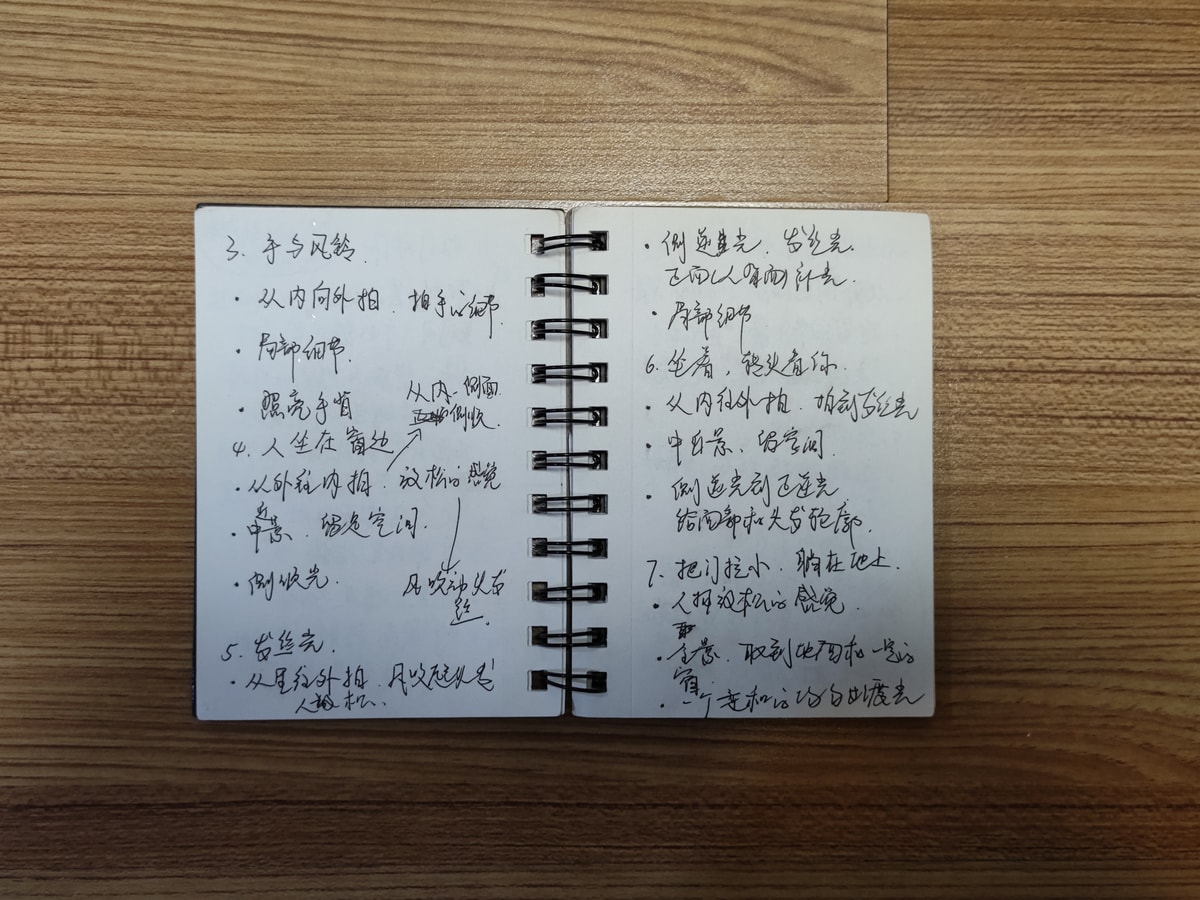 3. 手与风铃.
· 从内向外拍. 拍手的细节.
· 局部细节.
· 照亮手背
从内. 侧面
侧收.
4. 人坐在窗边
· 从外往内拍. 放松的感觉
近
· 中景. 留足空间.
· 侧顺光.
风吹动头发
丝.
5. 发丝光.
· 从里往外拍. 风吹起头发
人放松.
· 侧逆光. 发丝光.
正面人 面补光.
· 局部细节
6. 坐着, 转头看你.
· 从内往外拍. 拍到发丝光
· 中近景. 留空间.
· 侧逆光到正逆光
给面部和头发轮廓.
7. 把门拉小. 躺在地上.
· 人 放松的感觉.
· 全景. 取到地面和一定的
窗
· 一个柔和的均匀 光